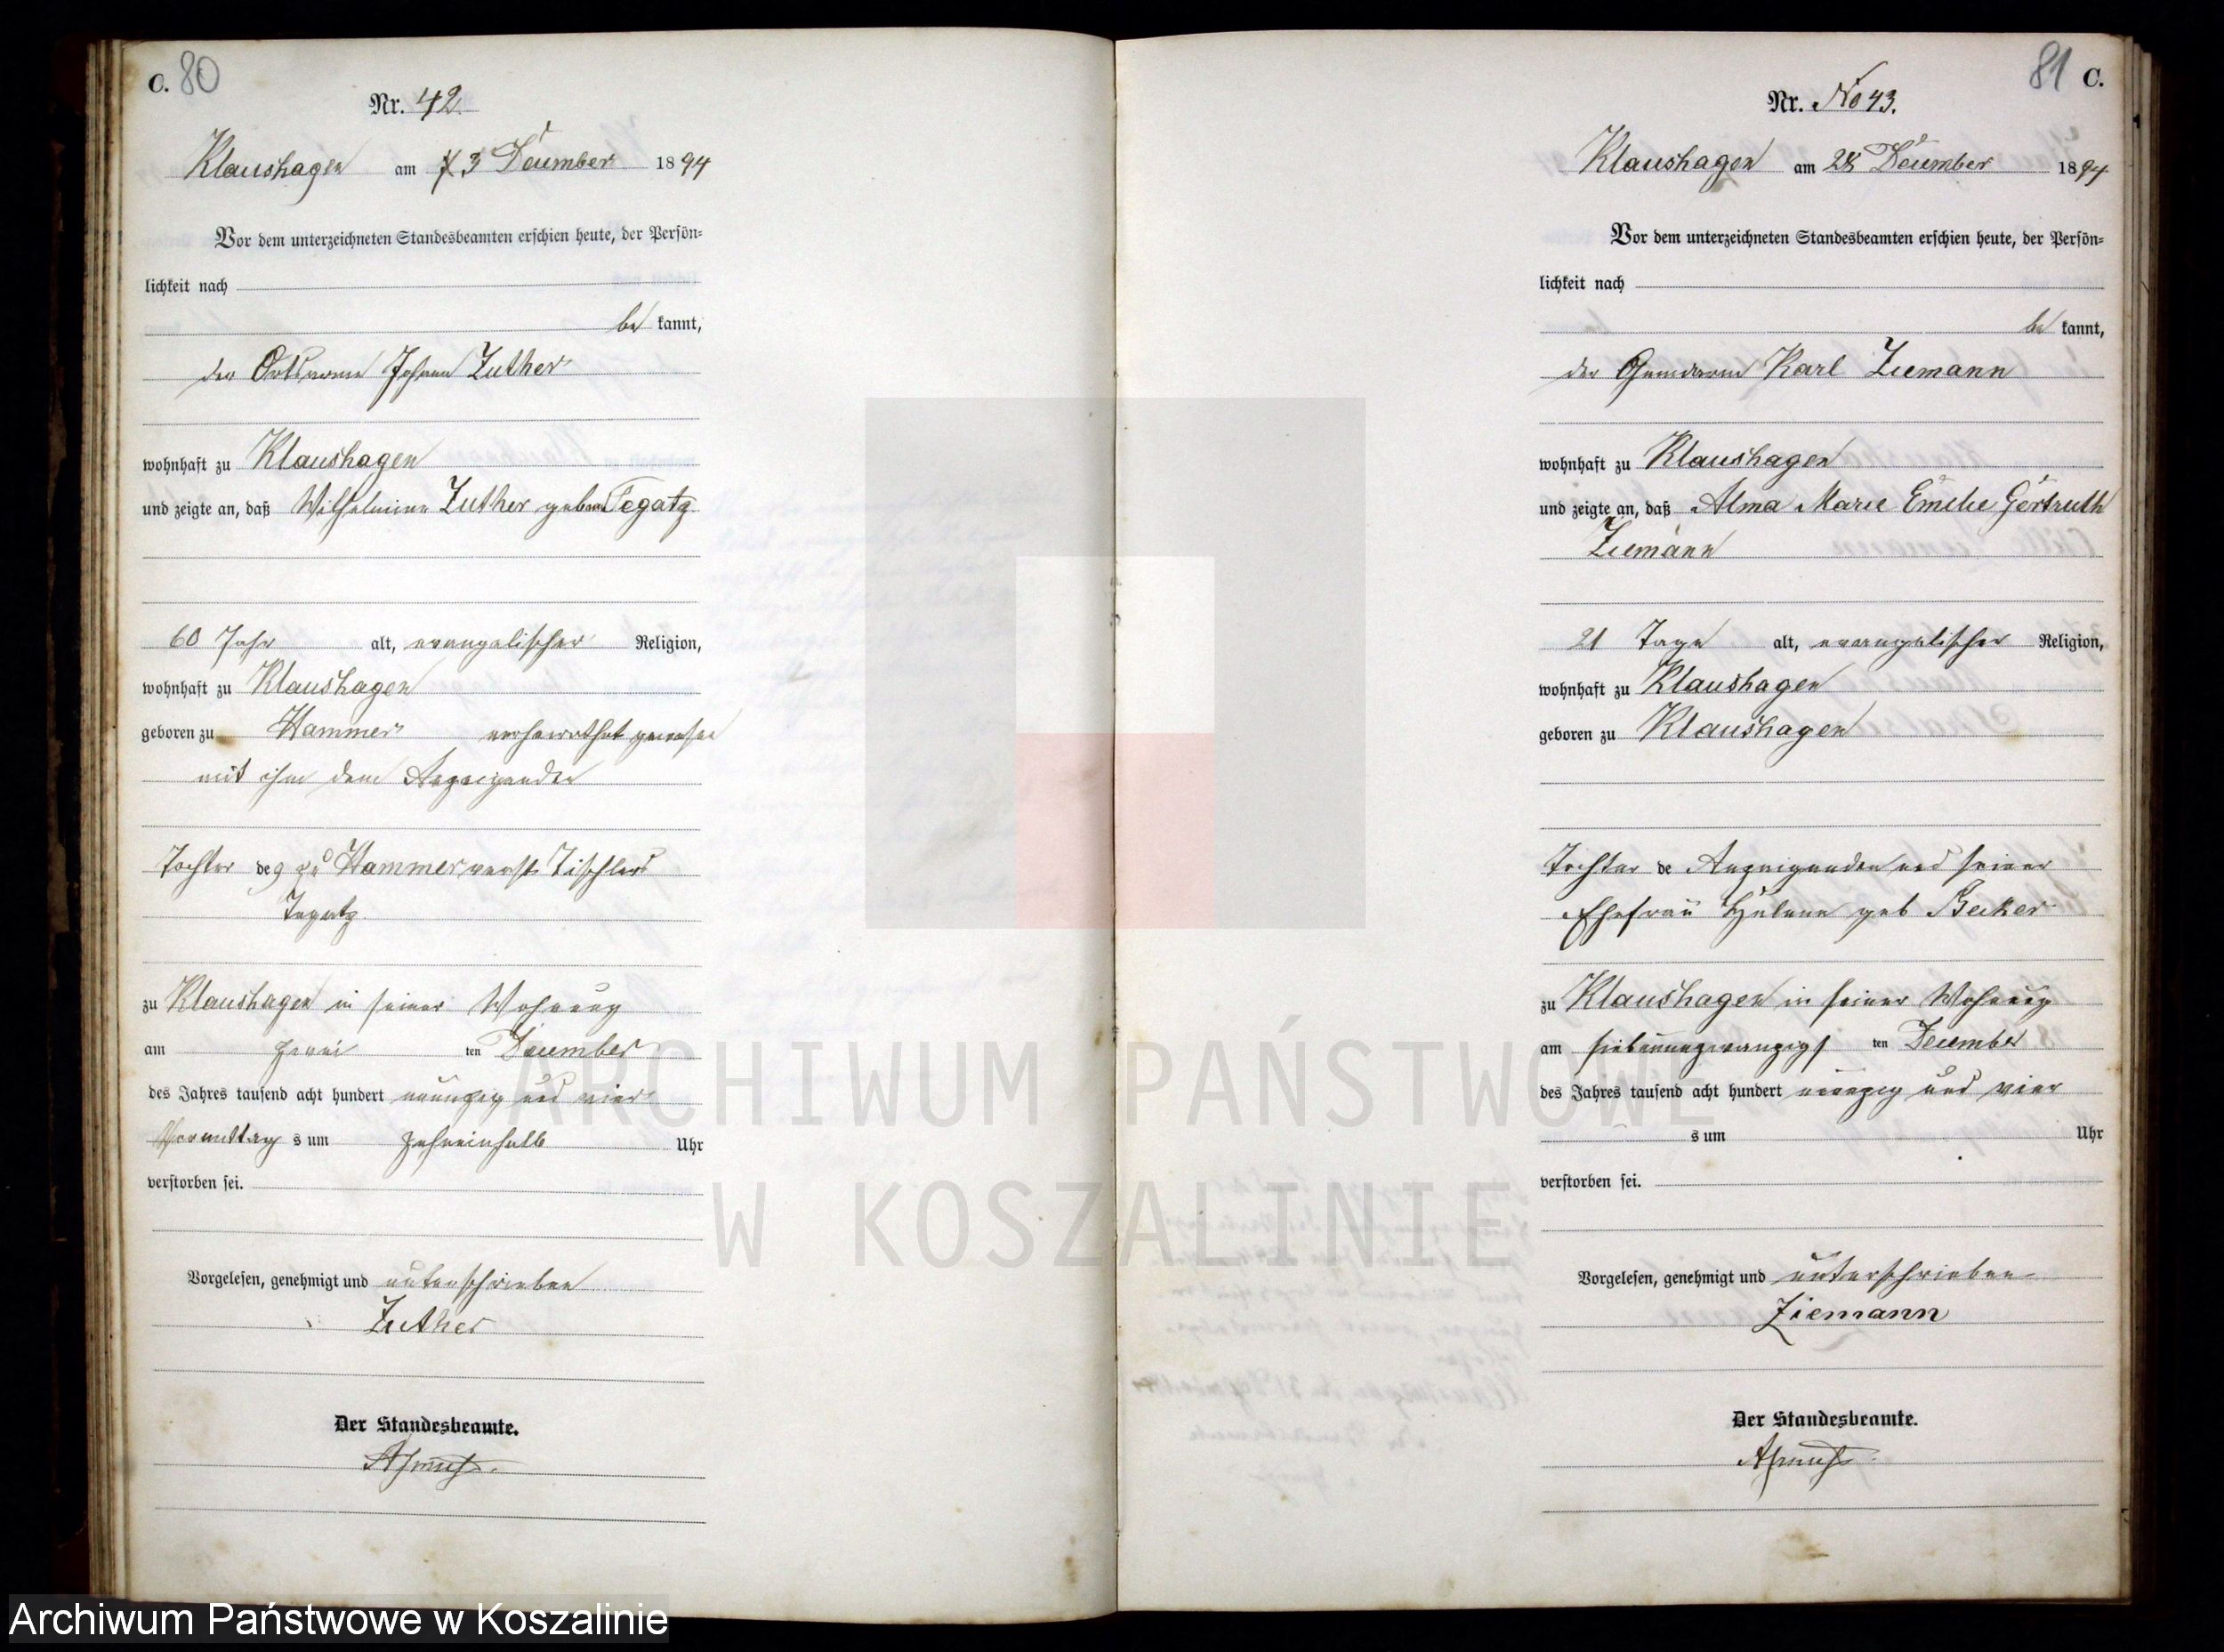 C. 80
Nr. 42.
Klaushagen am 3 December 1894
Vor dem unterzeichneten Standesbeamten erschien heute, der Persön-
lichkeit nach
be kannt,
der Ortsarme Johann Zuther
wohnhaft zu Klaushagen
und zeigte an, daß Wilhelmine Zuther geborne Tegatz
60 Jahr alt, evangelischer Religion,
wohnhaft zu Klaushagen
geboren zu Hammer verheirathet gewesen
mit ihm dem Anzeigenden
Tochter des zu Hammer verst. Tischlers
Tegatz.
zu Klaushagen in seiner Wohnung
am zwei ten December
des Jahres tausend acht hundert neunzig und vier
Vormittag s um zehneinhalb Uhr
verstorben sei.
Vorgelesen, genehmigt und unterschrieben
Zuther
Der Standesbeamte.
81 C.
Nr. No 43.
Klaushagen am 28 December 1894
Vor dem unterzeichneten Standesbeamten erschien heute, der Persön-
lichkeit nach
be kannt,
der Karl Ziemann
wohnhaft zu Klaushagen
und zeigte an, daß Alma Marie Emilie Gertruth
Ziemann
21 Tage alt, evangelischer Religion,
wohnhaft zu Klaushagen
geboren zu Klaushagen
Tochter de Anzeigenden und seiner
Ehefrau Helene geb Becker
zu Klaushagen in seiner Wohnung
am siebenundzwanzigs ten December
des Jahres tausend acht hundert neunzig und vier
s um Uhr
verstorben sei.
Vorgelesen, genehmigt und unterschrieben
Ziemann
Der Standesbeamte.
ARCHIWUM PAŃSTWOWE
W KOSZALINIE
Archiwum Państwowe w Koszalinie